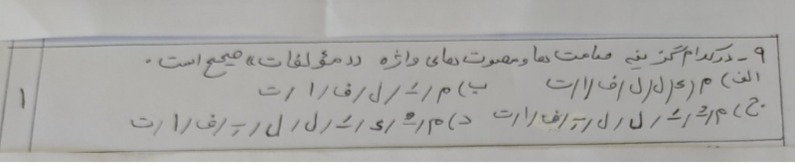 ۹- در کدام گزینه صامت ها و مصوت های واژه «مؤلفات» صحیح است.
الف) م/ؤ/ل/ل/ف/ا/ت ب) م/ـُ/ل/ف/ا/ت
ج) م/ـُ/ء/ـَ/ل/ل/ـِ/ف/ا/ت د) م/ـُ/ء/ـَ/ل/ل/ـِ/ف/ا/ت
۱